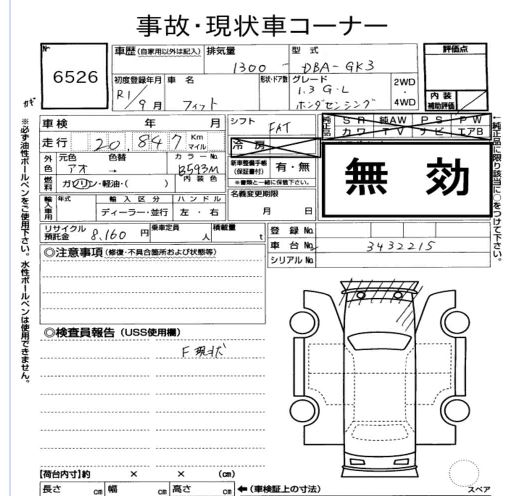 事故・現状車コーナー
№ 6526
車歴（自家用以外は記入） 排気量 1300 型式 DBA-GK3 評価点
初度登録年月 R1/9月 車名 フィット 形状・ドア数 グレード 1.3 G・L ホンダセンシング 2WD・4WD 内装 補助評価
車検 年 月 シフト FAT 純正品 SR 純AW PS PW
走行 20,847 Km マイル 冷房 カワ TV ナビ エアB
外色 元色 アオ→ 色替 カラーNo B593M 新車整備手帳（保証書付） 有・無 ※書類と一緒に保管下さい。 無効
燃料 ガソリン・軽油・( ) 内装色 名義変更期限
輸入車用 年式 輸入区分 ディーラー・並行 ハンドル 左・右 月 日
リサイクル預託金 8,160円 乗車定員 人 積載量 t 登録No
車台No 3432215
シリアルNo
◎注意事項（修復・不具合箇所および状態等）
◎検査員報告（USS使用欄）
F現状
【荷台内寸】約 × × (cm)
長さ cm 幅 cm 高さ cm ←（車検証上の寸法）
スペア
※必ず油性ボールペンをご使用下さい。水性ボールペンは使用できません。
←純正品に限り該当に○をつけて下さい。